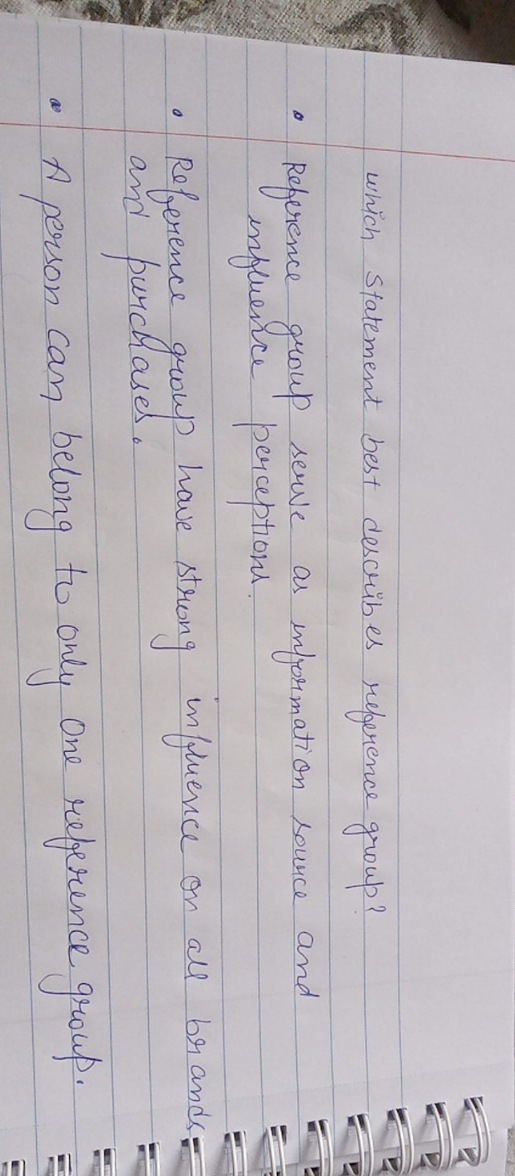 which statement best describes reference group?
• Reference group serve as information source and
influence perceptions.
• Reference group have strong influence on all brands
and purchases.
• A person can belong to only one reference group.